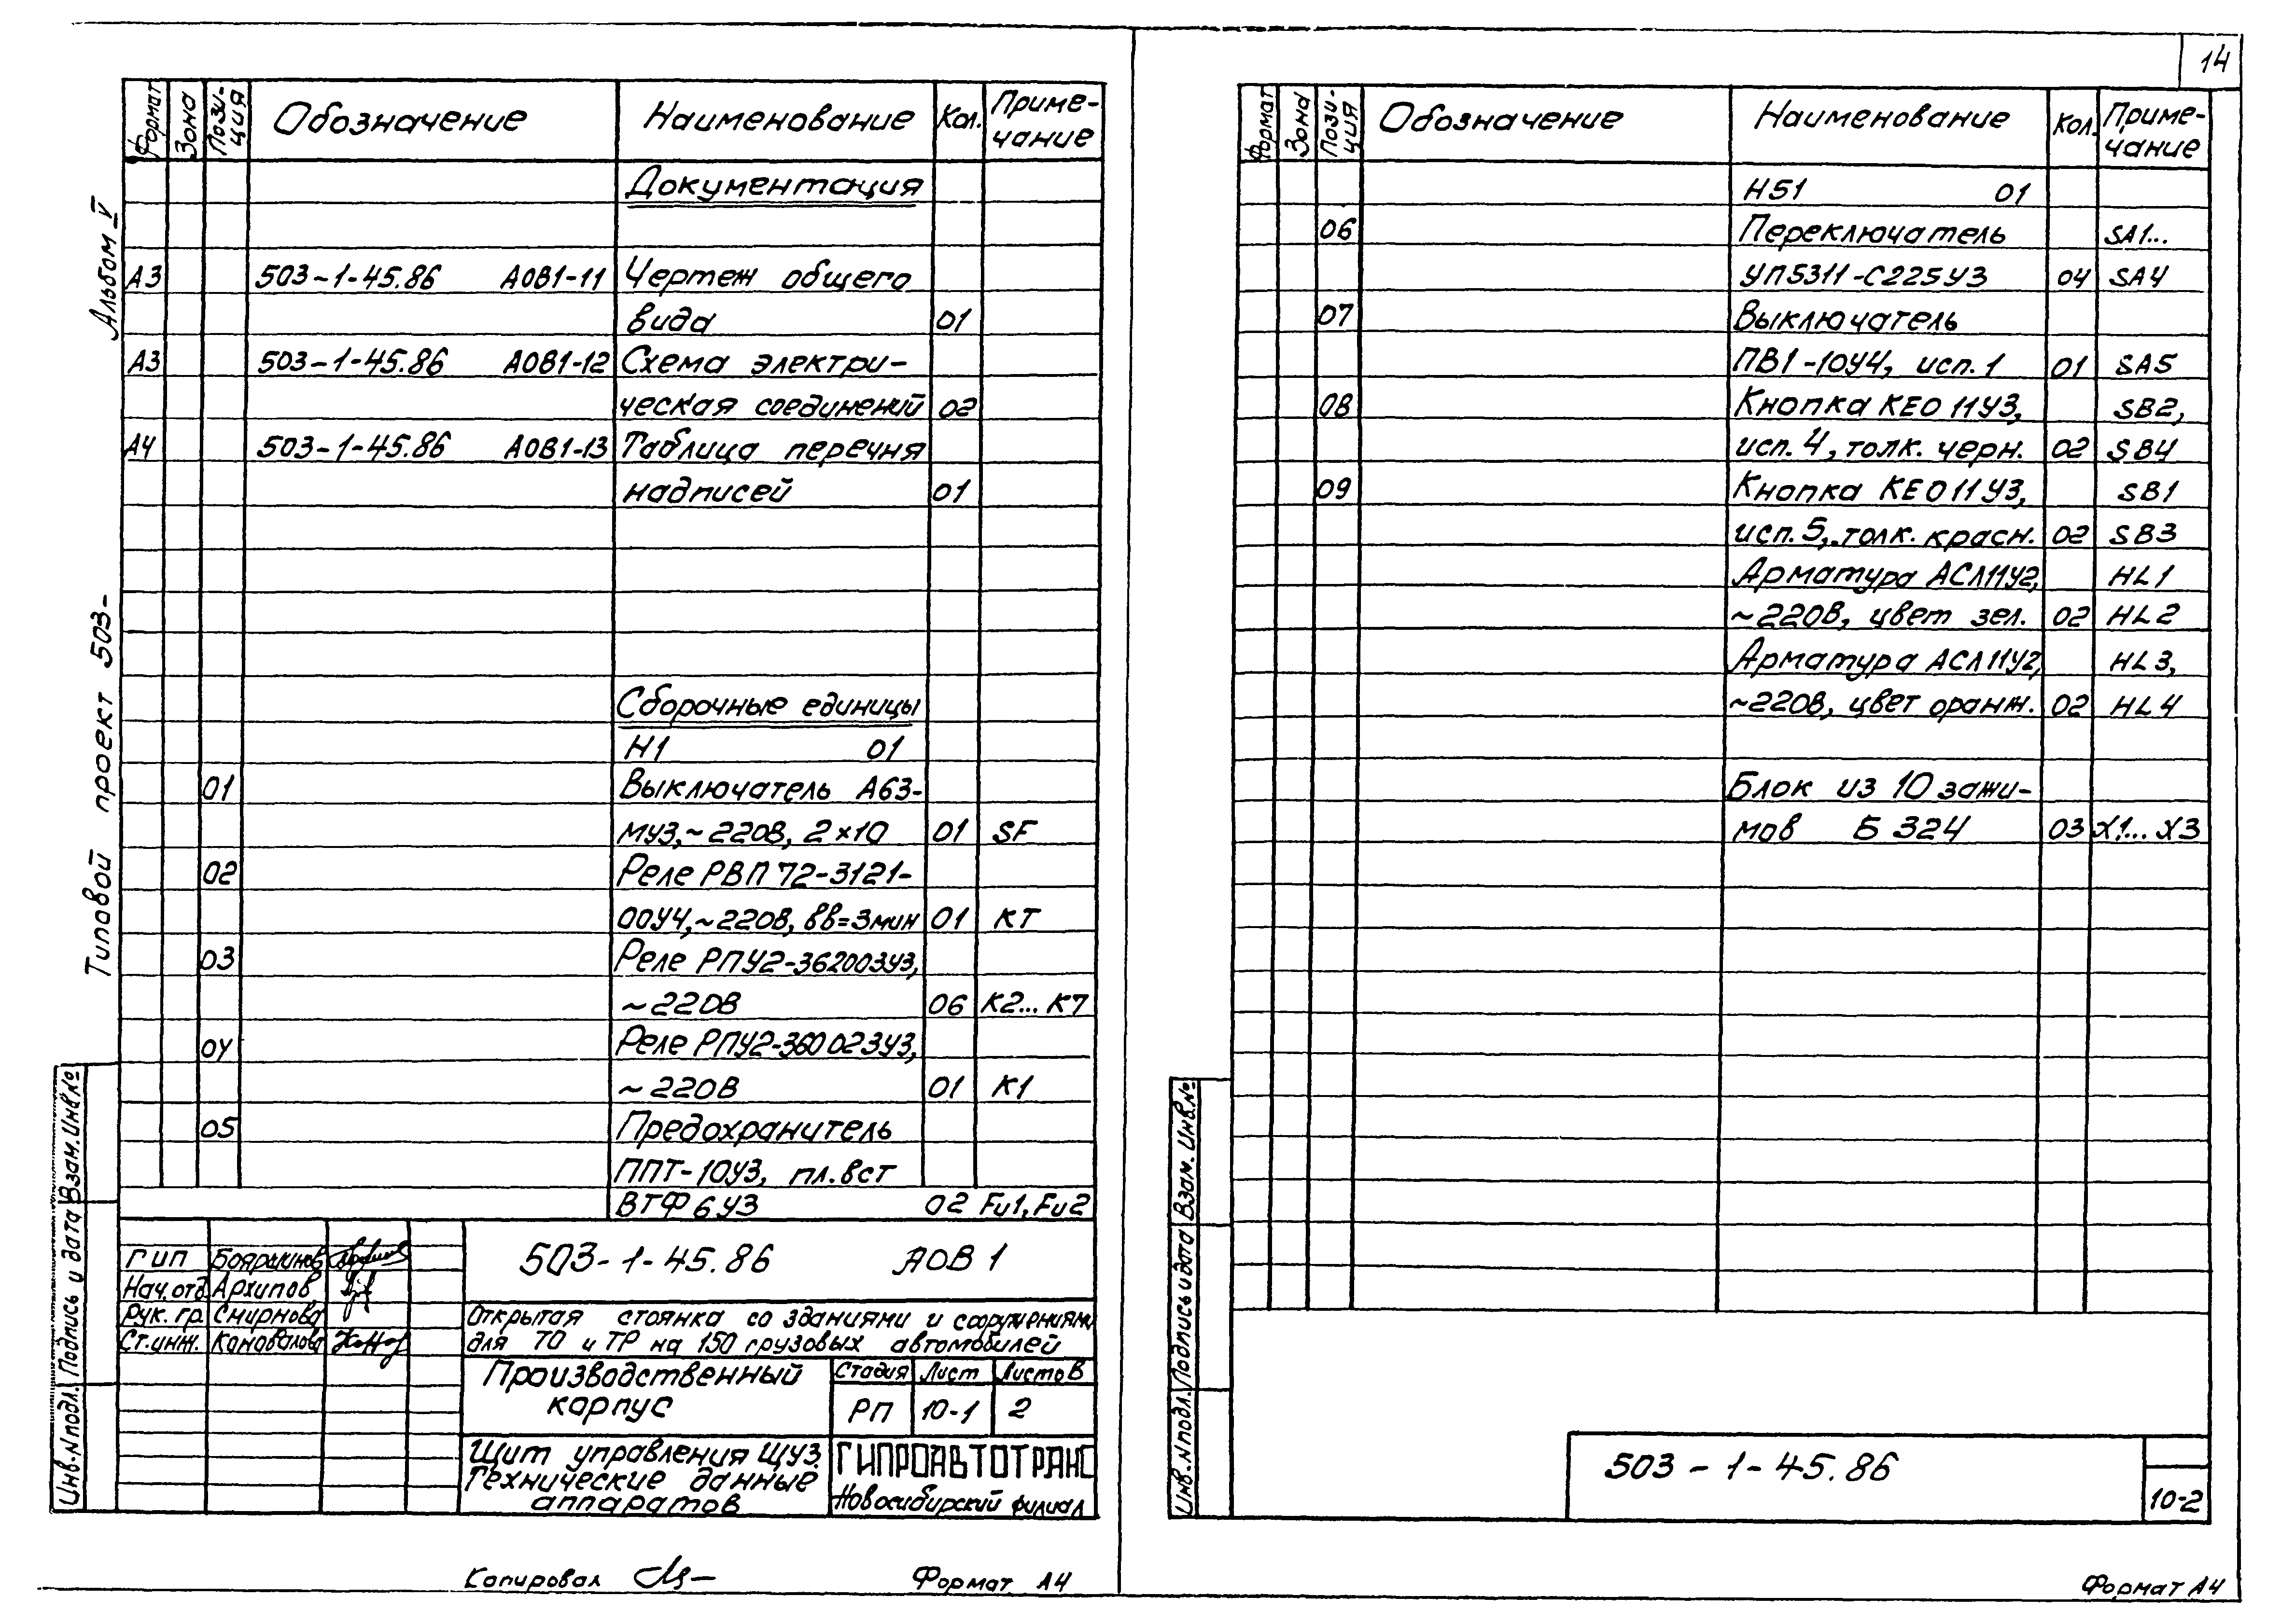 14
Формат Зона Пози-ция Обозначение Наименование Кол. Приме-чание
Документация
А3 503-1-45.86 АОВ1-11 Чертеж общего
вида 01
А3 503-1-45.86 АОВ1-12 Схема электри-
ческая соединений 02
А4 503-1-45.86 АОВ1-13 Таблица перечня
надписей 01
Сборочные единицы
Н1 01
01 Выключатель А63-
МУ3,~220В, 2×10 01 SF
02 Реле РВП 72-3121-
00У4,~220В, вв=3мин 01 КТ
03 Реле РПУ2-362003У3,
~220В 06 К2...К7
04 Реле РПУ2-360023У3,
~220В 01 К1
05 Предохранитель
ППТ-10У3, пл.вст
ВТФ6У3 02 Fu1, Fu2
Альбом V
Типовой проект 503-
Взам. Инв.№
Подпись и дата
Инв.Nподл.
ГИП Бояршинов
Нач.отд. Архипов
Рук. гр. Смирнова
Ст.инж. Коновалова
503-1-45.86 АОВ 1
Открытая стоянка со зданиями и сооружениями
для ТО и ТР на 150 грузовых автомобилей
Производственный
корпус
Стадия Лист Листов
РП 10-1 2
Щит управления ЩУ3.
Технические данные
аппаратов
ГИПРОАВТОТРАНС
Новосибирский филиал
Копировал
Формат А4
Формат Зона Пози-ция Обозначение Наименование Кол. Приме-чание
Н51 01
06 Переключатель SA1...
УП5311-С225У3 04 SA4
07 Выключатель
ПВ1-10У4, исп.1 01 SA5
08 Кнопка КЕ011У3, SB2,
исп.4, толк. черн. 02 SB4
09 Кнопка КЕ011У3, SB1
исп.5, толк. красн. 02 SB3
Арматура АСЛ11У2, HL1
~220В, цвет зел. 02 HL2
Арматура АСЛ11У2, HL3,
~220В, цвет оранж. 02 HL4
Блок из 10 зажи-
мов Б 324 03 X1...X3
Взам. Инв.№
Подпись и дата
Инв.Nподл.
503-1-45.86
10-2
Формат А4